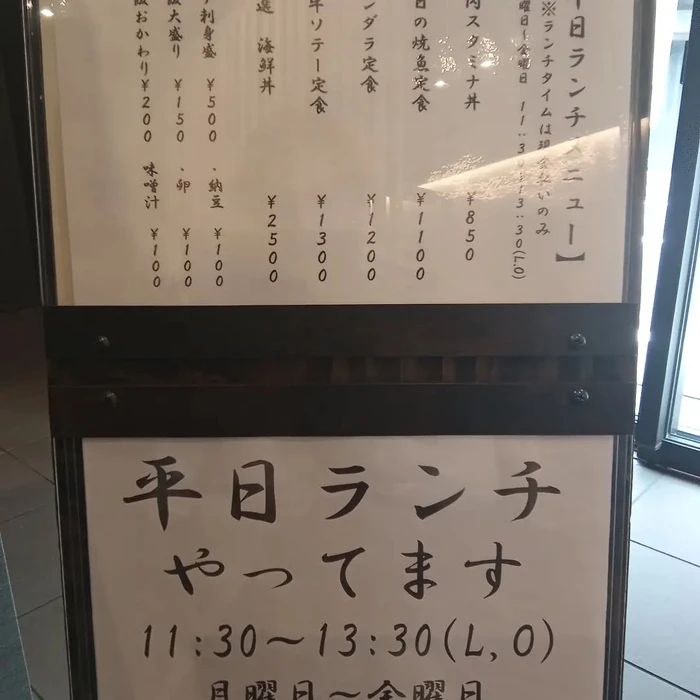 平日ランチメニュー】
※ランチタイムは現金払いのみ
曜日～金曜日 11:30~13:30(L.O)
肉スタミナ丼 ¥850
日の焼魚定食 ¥1100
ンダラ定食 ¥1200
ソテー定食 ¥1300
選 海鮮丼 ¥2500
刺身盛 ¥500 ・納豆 ¥100
大盛り ¥150 ・卵 ¥100
飯おかわり ¥200 味噌汁 ¥100
平日ランチ
やってます
11:30～13:30(L,O)
月曜日～金曜日